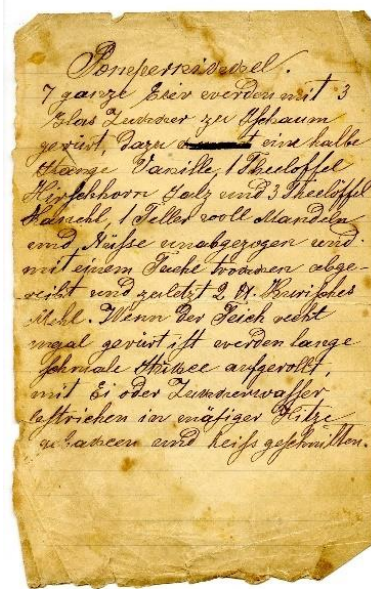 Pomperninckel.
7 ganze Eier werden mit 3
Glas Zuccker zu Schaum
gerürt, dazu eine halbe
Stange Vanille, 1 Theeloffel
Hirschhorn Salz und 3 Theelöffel
Kanehl, 1 Teller voll Mandeln
und Nüsse unabgezogen und
mit einem Tuche trocken abge-
reibt und zuletzt 2 Kurisches
Mehl. Wenn der Teich recht
gerürt ist werden lange
schmale aufgerollt,
mit Ei oder Zuckerwasser
bestrichen in mäßiger Hitze
gebacken und heiß geschnitten.